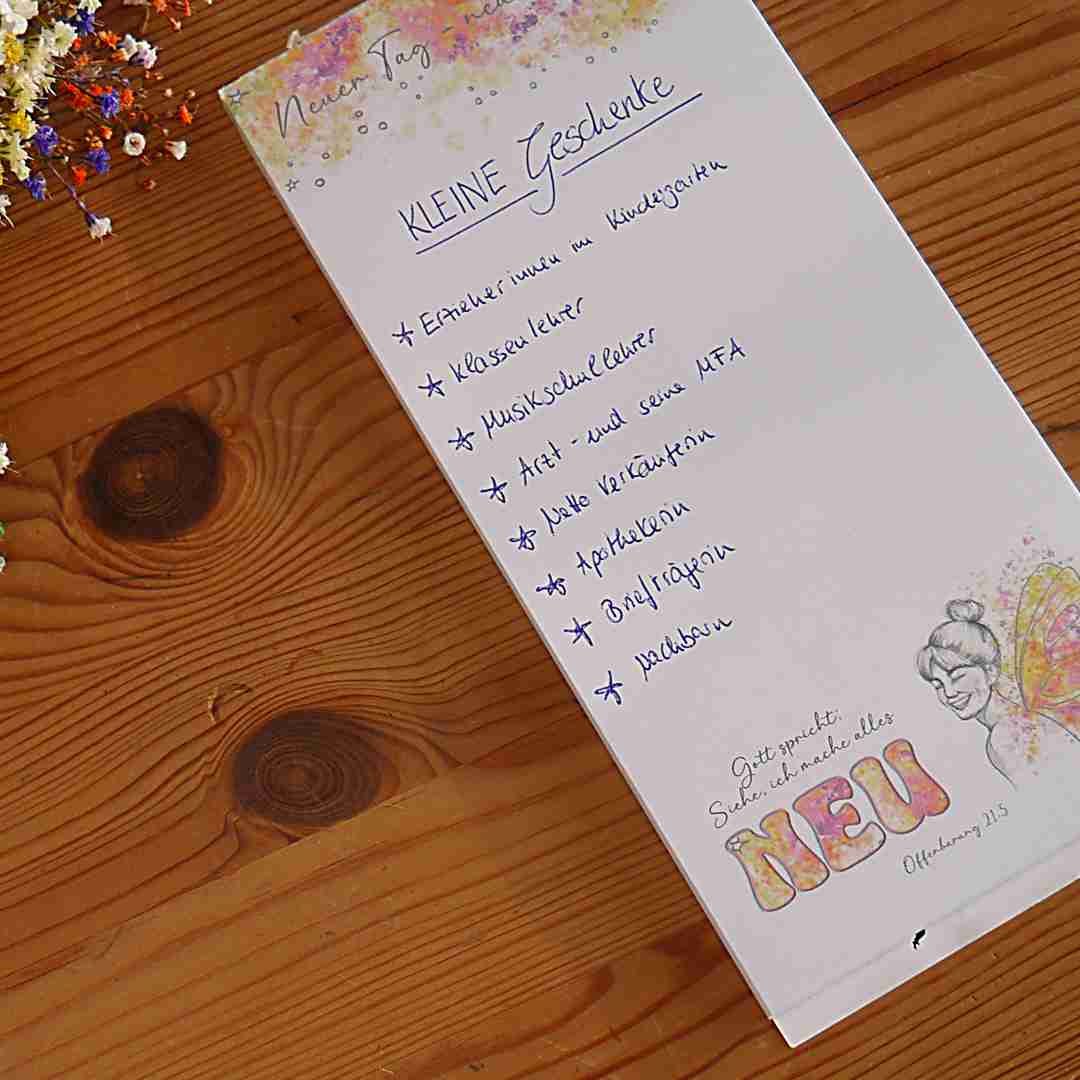 Neuer Tag - neu
KLEINE Geschenke
* Erzieherinnen im Kindergarten
* Klassenlehrer
* Musikschullehrer
* Arzt - und seine MFA
* Nette Verkäuferin
* Apothekerin
* Briefträgerin
* Nachbarn
Gott spricht:
Siehe, ich mache alles
NEU
Offenbarung 21.5